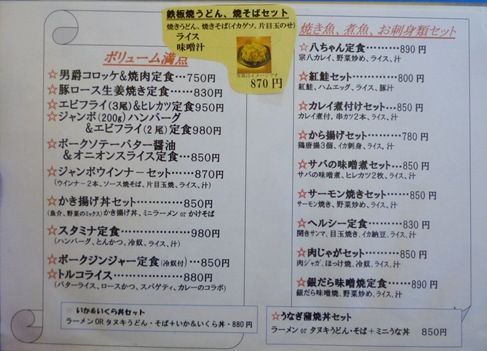 鉄板焼うどん、焼そばセット
焼きうどん、焼きそば(イカゲソ、片目玉のせ)
ライス
味噌汁
870円
ボリューム満点
☆男爵コロッケ&焼肉定食…750円
☆豚ロース生姜焼き定食…830円
☆エビフライ(3尾)&ヒレカツ定食950円
☆ジャンボ(200g)ハンバーグ
&エビフライ(2尾)定食980円
☆ポークソテーバター醤油
&オニオンスライス定食…850円
☆ジャンボウインナーセット…870円
(ウインナー2本、ソース焼そば、片目玉焼、ライス、汁)
☆かき揚げ丼セット………850円
(魚介、野菜のミックス)かき揚げ丼、ミニラーメン or かけそば
☆スタミナ定食…………980円
(ハンバーグ、とんかつ、冷奴、ライス、汁)
☆ポークジンジャー定食(冷奴付)…850円
☆トルコライス…………880円
(バターライス、ロースかつ、スパゲティ、カレーのコラボ)
☆いか&いくら丼セット
ラーメン OR タヌキうどん・そば+いか&いくら丼・880円
焼き魚、煮魚、お刺身類セット
☆八ちゃん定食………890円
宗八カレイ、野菜炒め、ライス、汁
☆紅鮭セット…………800円
紅鮭、ハムエッグ、ライス、豚汁
☆カレイ煮付けセット……850円
カレイ煮付、串カツ2本、ライス、汁
☆から揚げセット………780円
鶏唐揚3個、イカ刺身、ライス、汁
☆サバの味噌煮セット…850円
サバの味噌煮、ヒレカツ2枚、ライス、汁
☆サーモン焼きセット……850円
サーモン焼き、野菜炒め、ライス、汁
☆ヘルシー定食………830円
開きサンマ、目玉焼き、イカ納豆、ライス、汁
☆肉じゃがセット………850円
肉ジャガ、ほっけ焼、冷奴、ライス、汁
☆銀だら味噌焼定食……890円
銀だら味噌焼、野菜炒め、ライス、汁
☆うなぎ蒲焼丼セット
ラーメン or タヌキうどん・そば+ミニうな丼 850円